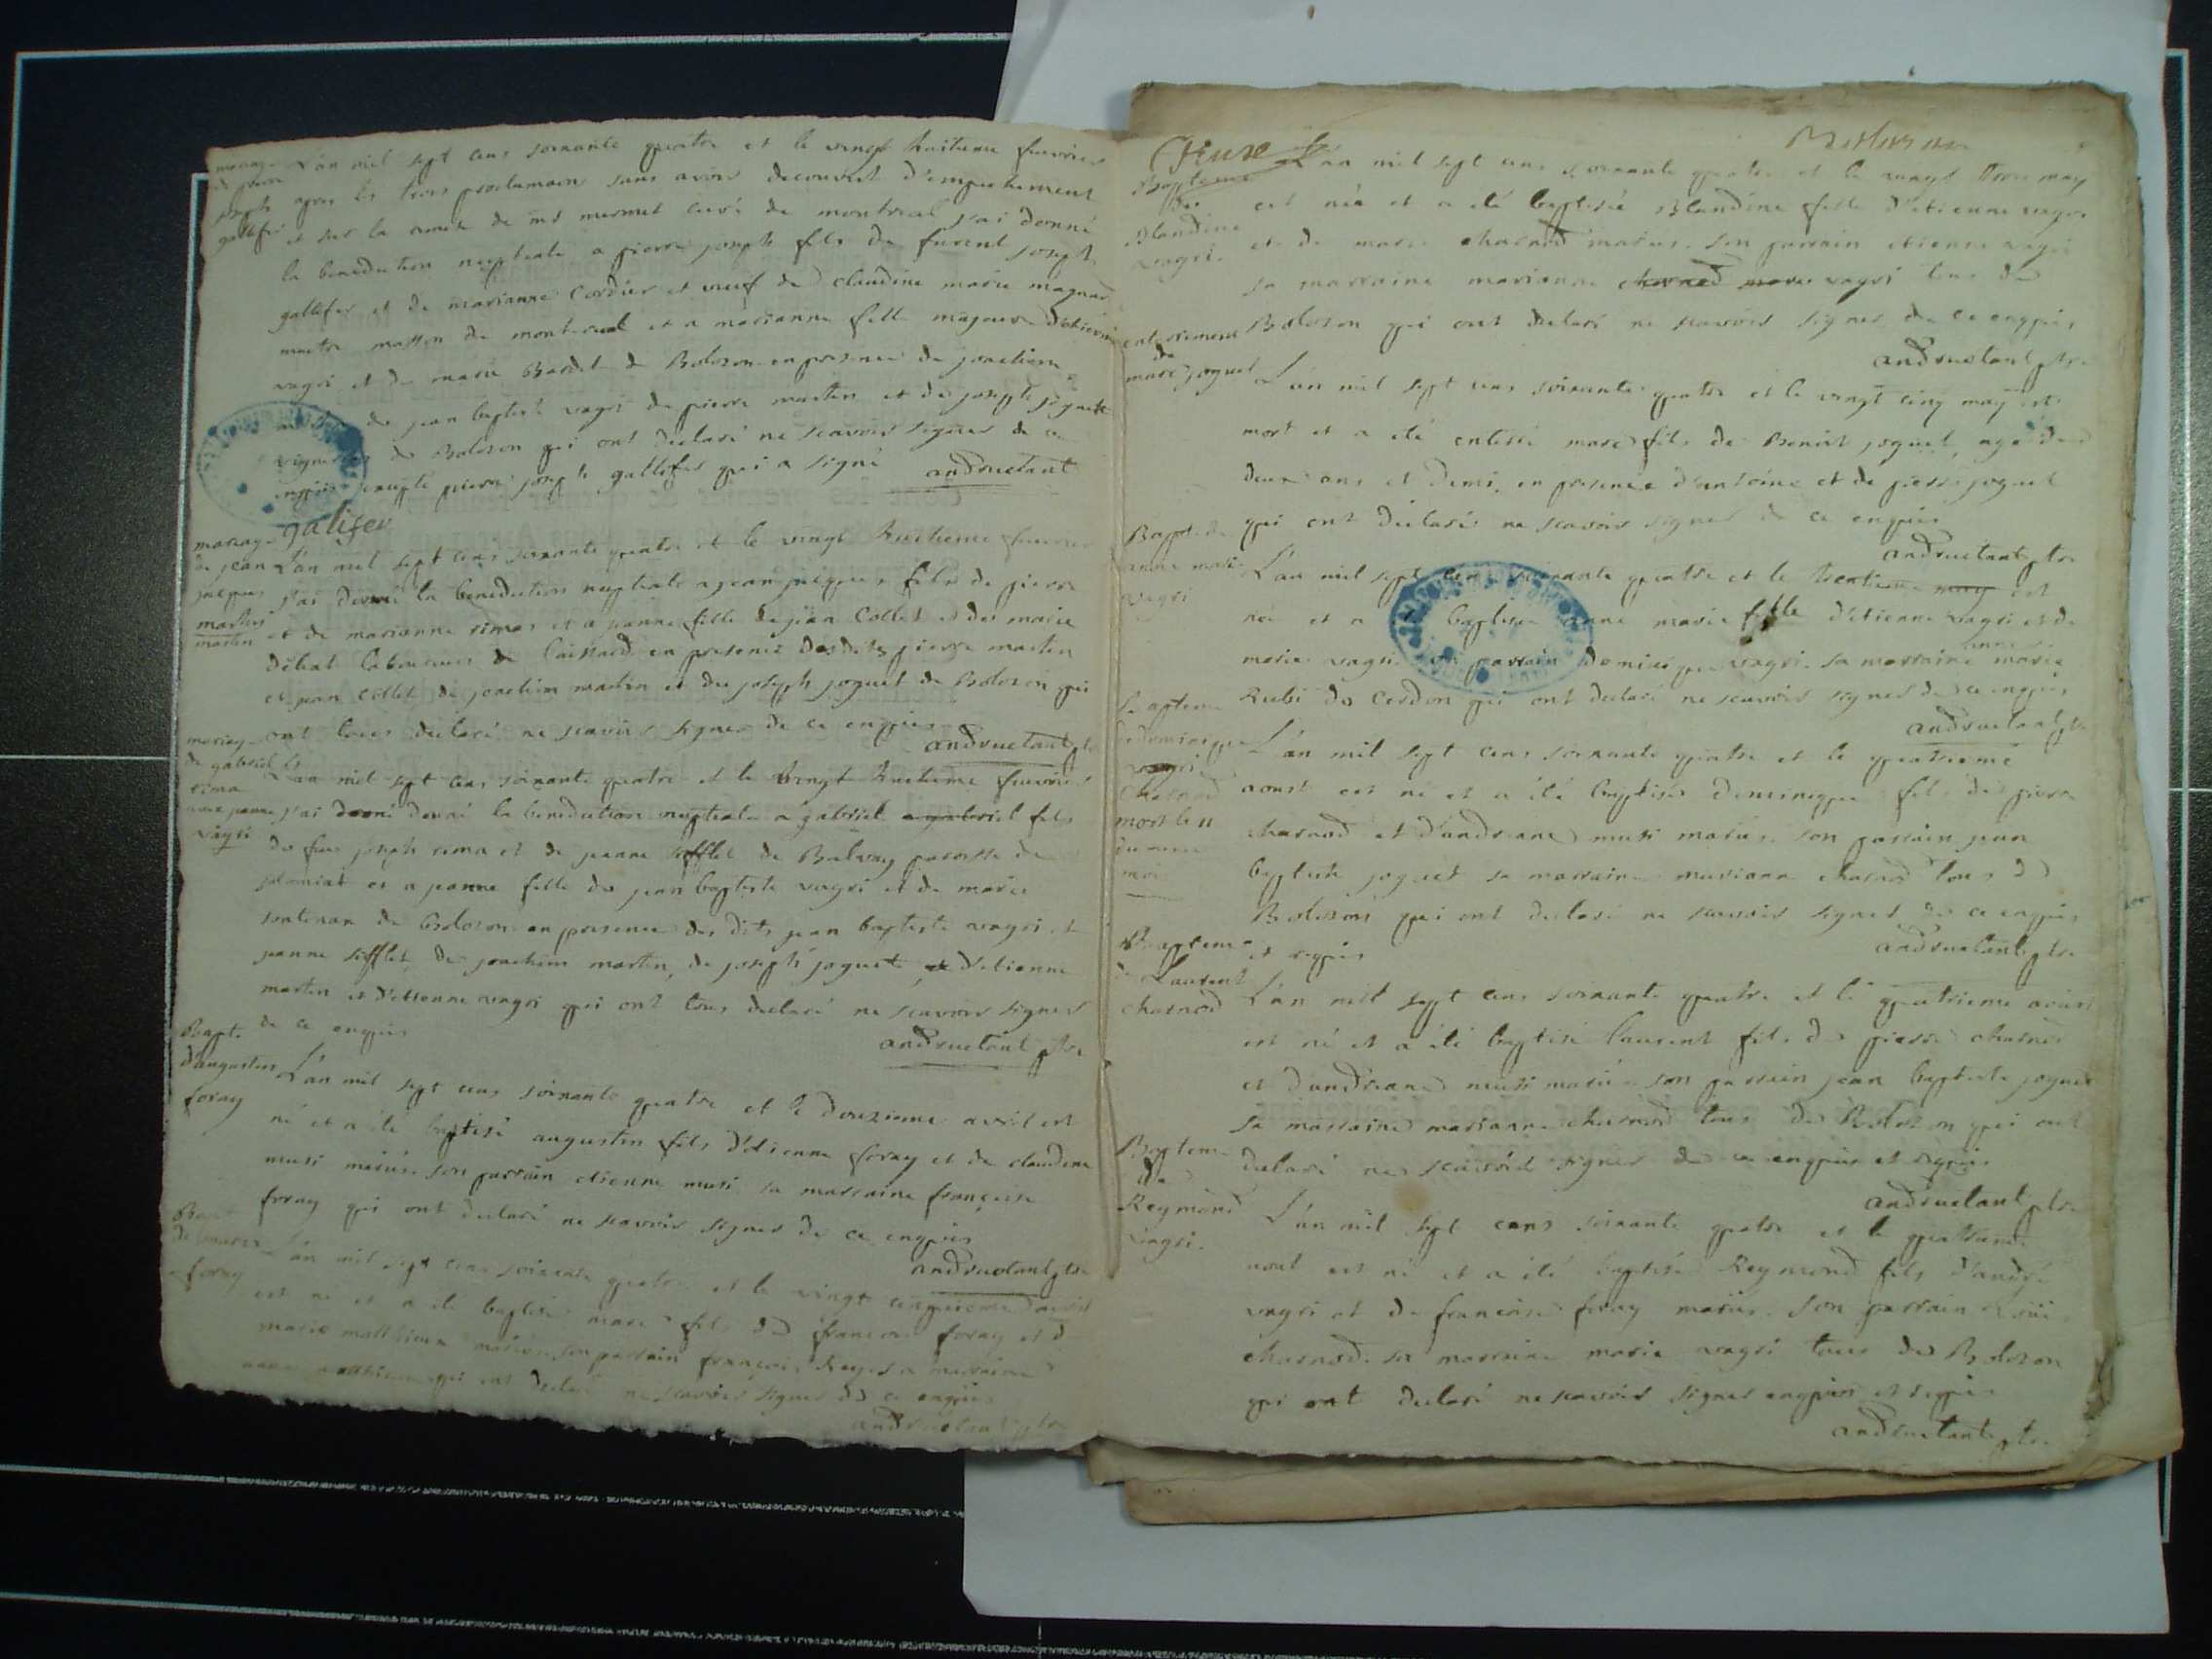 mariage
de pierre
joseph
gallifer
L'an mil sept cens soixante quatre et le vingt huitieme fevrier
apres les trois proclamaons sans avoir decouvert d'empechement
et sur la remise de mr mermet curé de montreal j'ai donné
la benediction nuptiale a pierre joseph fils de joseph
gallifer et de marianne Cordier et veuf de claudine marie magnar
maitre masson de montreal et a marianne fille majeure d'etienne
vagri et de marie Bardet de Bolozon en presence de joachim
de jean baptiste vagri de pierre martin et de joseph joguet
vignerons de Bolozon qui ont declaré ne scavoir signer de ce
enquis excepté pierre joseph gallifer qui a signé andruetant
galifer
mariage
de jean
jacques
martin
martin
L'an mil sept cens soixante quatre et le vingt huitieme fevrier
j'ai donné la benediction nuptiale a jean jacques fils de pierre
et de marianne rimas et a jeanne fille de jean Collet et de marie
débat laboureurs de laissard en presence desdits pierre martin
et jean collet de joachim martin et de joseph joguet de Bolozon qui
ont tous declaré ne scavoir signer de ce enquis
andruetant ptre
mariage
de gabriel
rima
avec jeanne
vagri
L'an mil sept cens soixante quatre et le vingt huitieme fevrier
j'ai donné donné la benediction nuptiale a gabriel a gabriel fils
de feu joseph rima et de jeanne sifflet de Balvay paroisse de
et a jeanne fille de jean baptiste vagri et de marie
de Bolozon en presence des dits jean baptiste vagri et
jeanne sifflet, de joachim martin, de joseph joguet, et d'etienne
martin et d'etienne vagri qui ont tous declaré ne scavoir signer
de ce enquis
andruetant ptre
Bapt.
d'augustin
foray
L'an mil sept cens soixante quatre et le douzieme avril est
né et a été baptisé augustin fils d'etienne foray et de claudine
musi mariés. son parrain etienne musi sa marraine françoise
foray qui ont declaré ne scavoir signer de ce enquis
andruetant ptre
Bapt
de marc
foray
L'an mil sept cens soixante quatre et le vingt cinquieme avril
est né et a été baptisé marc fils de françois foray et d
marie mathieu mariés. son parrain françois Rey sa marraine
qui ont declaré ne scavoir signer de ce enquis
andruetant ptre
Bolozon
Bapteme
de
Blandine
vagri.
L'an mil sept cens soixante quatre et le vingt trois may
est née et a été baptisée Blandine fille d'etienne vagri
et de marie charnod mariés. son parrain etienne vagri
sa marraine marianne charnod marie vagri tous de
Bolozon qui ont declaré ne scavoir signer de ce enquis
andruetant ptre
enterrement
de
marc joguet
L'an mil sept cens soixante quatre et le vingt cinq may est
mort et a été enterré marc fils de Benoit joguet, agé de
deux ans et demi, en presence d'antoine et de pierre joguet
qui ont déclaré ne scavoir signer de ce enquis
andruetant ptre
Bapt. de
anne marie
vagri
L'an mil sept cens soixante quatre et le trentieme may est
née et a été baptisée anne marie fille d'etienne vagri et de
marie vagri son parrain dominique vagri. sa marraine anne marie
Rubi de Cerdon qui ont declaré ne scavoir signer de ce enquis
andruetant ptre
Bapteme
de dominique
vagri
charnod
mort le 11
du meme
mois
L'an mil sept cens soixante quatre et le quatrieme
aoust est né et a été baptisé dominique fils de pierre
charnod et d'andreane musi mariés. son parrain jean
baptiste joguet sa marraine marianne charnod tous de
Bolozon qui ont declaré ne scavoir signer de ce enquis
et requis
andruetant ptre
Bapteme
de Laurent
charnod
L'an mil sept cens soixante quatre et le quatrieme aoust
est né et a été baptisé laurent fils de pierre charnod
et d'andreane musi mariés son parrain jean baptiste joguet
sa marraine marianne charnod tous de Bolozon qui ont
declaré ne scavoir signer de ce enquis et requis
andruetant ptre
Bapteme
de
Reymond
vagri.
L'an mil sept cens soixante quatre et le quatrieme
aout est né et a été baptisé Reymond fils d'andré
vagri et de françoise foray mariés. son parrain Loüis
charnod. sa marraine marie vagri tous de Bolozon
qui ont declaré ne scavoir signer enquis et requis
andruetant ptre